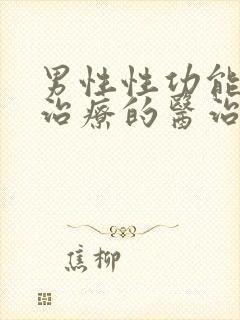 男性性功能
治療的醫治
焦柳